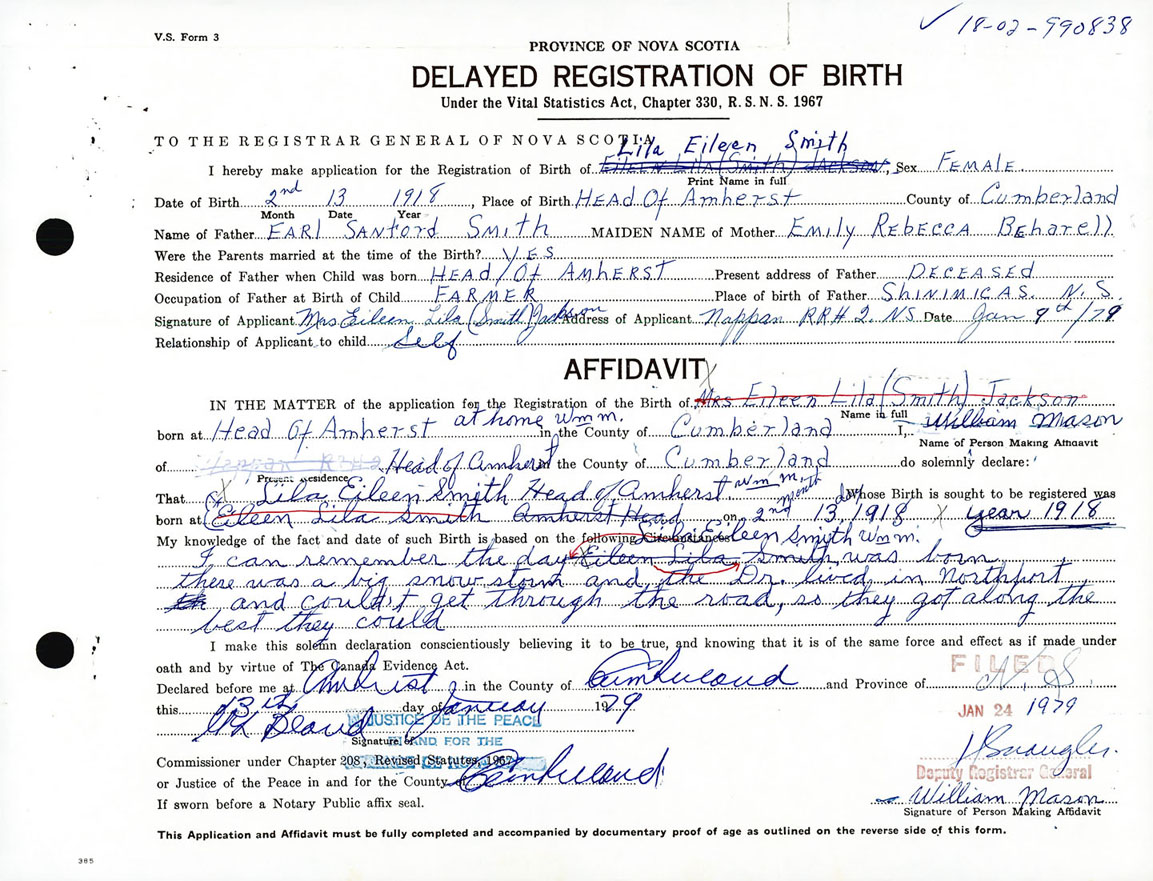 ✓ 18-02-990838
V.S. Form 3
PROVINCE OF NOVA SCOTIA
DELAYED REGISTRATION OF BIRTH
Under the Vital Statistics Act, Chapter 330, R.S.N.S. 1967
TO THE REGISTRAR GENERAL OF NOVA SCOTIA
Lila Eileen Smith
I hereby make application for the Registration of Birth of EILEEN LILA (SMITH) JACKSON, Sex FEMALE
Print Name in full
Date of Birth 2nd 13 1918, Place of Birth HEAD Of Amherst County of Cumberland
Month Date Year
Name of Father EARl SANford Smith MAIDEN NAME of Mother Emily REBECCA BEharell
Were the Parents married at the time of the Birth? YES
Residence of Father when Child was born HEAD/Of AMHERST Present address of Father DECEASED
Occupation of Father at Birth of Child FARMER Place of birth of Father SHINIMICAS. N.S.
Signature of Applicant Mrs Eileen Lila (Smith) Jackson Address of Applicant Nappan RR#2. NS Date Jan 9th/79
Relationship of Applicant to child Self
AFFIDAVIT
IN THE MATTER of the application for the Registration of the Birth of Mrs Eileen Lila (Smith) Jackson
Name in full
born at Head Of Amherst at home Wm m. in the County of Cumberland I, William Mason
Name of Person Making Affidavit
of Nappan RR#2 Head of Amherst in the County of Cumberland do solemnly declare:
Present Residence
That Lila Eileen Smith Head of Amherst. Wm M. Whose Birth is sought to be registered was
month
born at (Eileen Lila Smith Amherst Head on 2nd 13, 1918 x year 1918
My knowledge of the fact and date of such Birth is based on the following circumstances Lila Eileen Smith Wm m.
I can remember the day Eileen Lila Smith was born
there was a big snow storm and the Dr. lived in Northport
and couldn't get through the road, so they got along the
best they could
I make this solemn declaration conscientiously believing it to be true, and knowing that it is of the same force and effect as if made under
oath and by virtue of The Canada Evidence Act.
Declared before me at Amherst in the County of Cumberland and Province of N.S
FILED
this 13th day of January 1979
JAN 24 1979
JUSTICE OF THE PEACE
Signature of
IN AND FOR THE
Commissioner under Chapter 208, Revised Statutes, 1967
or Justice of the Peace in and for the County of Cumberland
Deputy Registrar General
If sworn before a Notary Public affix seal.
William Mason
Signature of Person Making Affidavit
This Application and Affidavit must be fully completed and accompanied by documentary proof of age as outlined on the reverse side of this form.
385